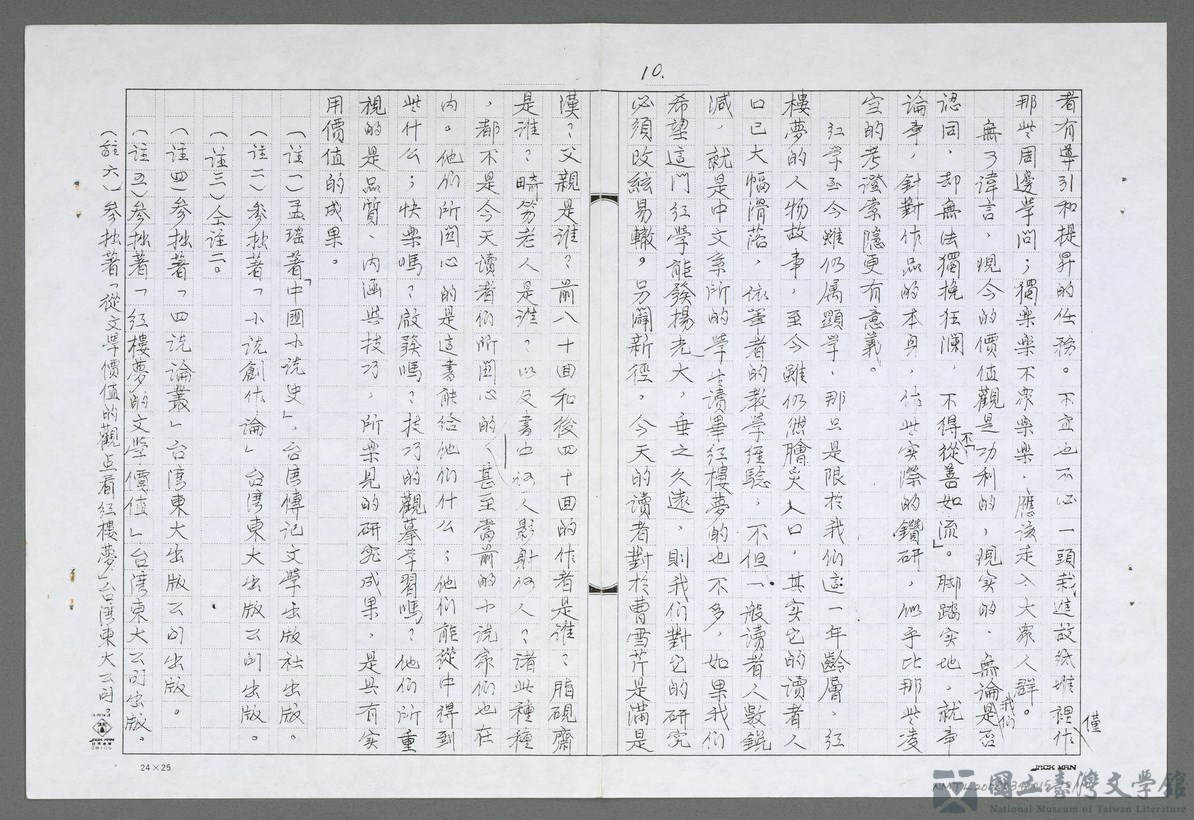 10.
者有導引和提昇的任務。不宜也不必一頭栽進故紙堆裡作僅
那些周邊學問；獨樂樂不衆樂樂，應該走入大衆人群。
無可諱言，現今的價值觀是功利的，現實的，無論我們是否
認同，却無法獨挽狂瀾，不得不「從善如流」。脚踏实地，就事
論事，針對作品的本身，作些实際的鑽研，似乎比那些凌
空的考證索隱更有意義。
紅学至今雖仍属顯学，那只是限於我们這一年齡層，紅
樓夢的人物故事，至今雖仍做膾炙人口，其实它的讀者人
口已大幅滑落，依筆者的教學經驗，不但一般讀者人數銳
減，就是中文系所的學生讀畢紅樓夢的也不多，如果我们
希望這門紅學能發揚光大，垂之久遠，則我们對它的研究
必須改絃易轍，另闢新徑，今天的讀者對於曹雪芹是滿是
漢？父親是谁？前八十回和後四十回的作者是谁？脂硯齋
是谁？畸笏老人是谁？以及書中何人影射何人？諸些種種
，都不是今天读者们所関心的，甚至當前的小说家们也在
内。他们所関心的是這書能给他们什么；他们能從中得到
些什么；快樂嗎？啟發嗎？技巧的觀摹学習嗎？他们所重
視的是品質、内涵與技巧，所樂見的研究成果，是具有实
用價值的成果。
（註一）孟瑶著「中國小说史」，台湾傳记文學出版社出版。
（註二）參拙著「小说創作論」台湾東大出版公司出版。
（註三）仝註二。
（註四）參拙著「四说論叢」台湾東大出版公司出版。
（註五）參拙著「紅樓夢的文學價值」台湾東大公司出版。
（註六）參拙著「從文學價值的觀点看紅樓夢」台湾東大公司。
24×25
JACK MAN
國立臺灣文學館
National Museum of Taiwan Literature